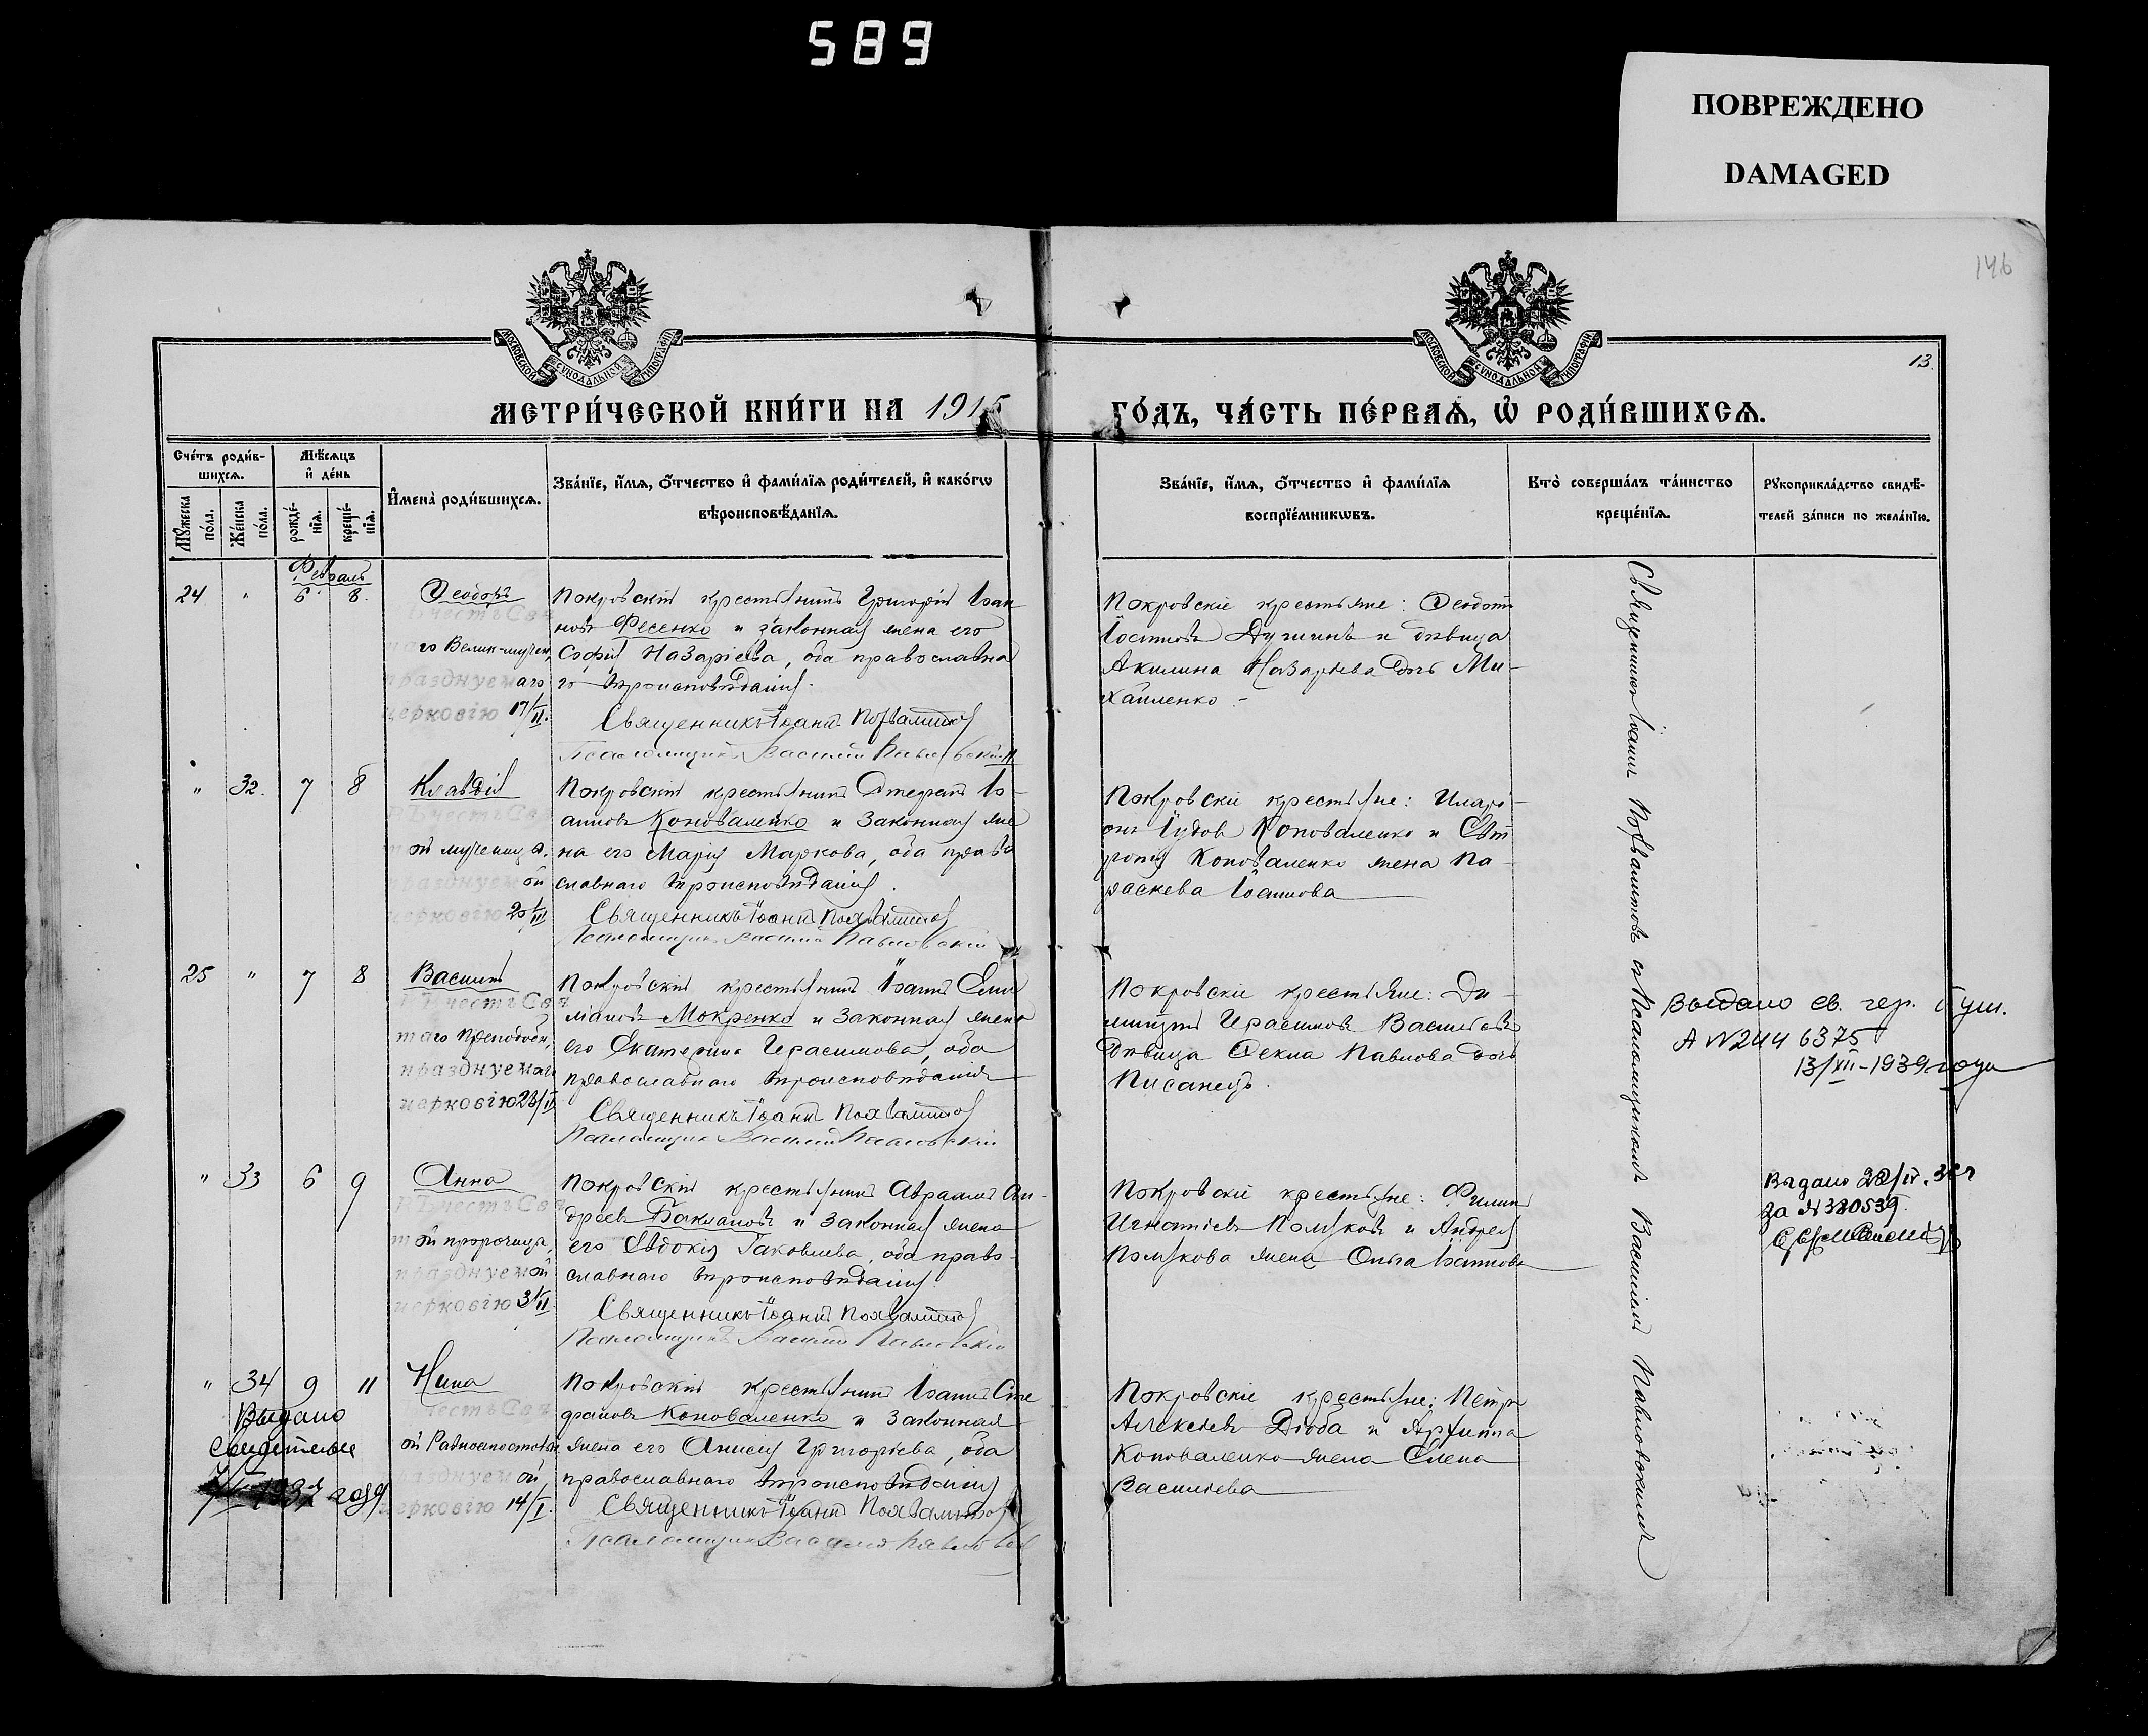 589
ПОВРЕЖДЕНО
DAMAGED
146
МОСКОВСКОЙ СѴНОДАЛЬНОЙ ТИПОГРАФІИ
МОСКОВСКОЙ СѴНОДАЛЬНОЙ ТИПОГРАФІИ
13.
МЕТРИ́ЧЕСКОЙ КНИ́ГИ НА 1915
ГО́ДЪ, ЧА́СТЬ ПЕ́РВАѦ, Ѡ҆ РОДИ́ВШИХСѦ.
Сче́тъ роди́в-
шихсѧ.
Мѣ́сѧцъ
и҆ де́нь
Мꙋ́жеска по́ла.
Же́нска по́ла.
рожде́-
нїѧ.
креще́-
нїѧ.
И҆мена̀ роди́вшихсѧ.
Зва́нїе, и҆́мѧ, ѻ҆́тчество и҆ фами́лїѧ роди́телей, и҆ како́гѡ
вѣроисповѣ́данїѧ.
Зва́нїе, и҆́мѧ, ѻ҆́тчество и҆ фами́лїѧ
воспрїе́мникѡвъ.
Кто̀ соверша́лъ та́инство
креще́нїѧ.
Рꙋкоприкла́дство свидѣ́-
телей за́писи по жела́нїю.
Февраль
24 " 6 8. Ѳеодоръ
Въ честь Свя
го Велик-мучен.
празднуемаго
церковію 17/II.
Покровскій крестьянинъ Григорій Іоан
новъ Фесенко и законная жена его
Софія Назаріева, оба православна
го вѣроисповѣданія.
Священникъ Іоаннъ Похвалитовъ
Псаломщикъ Василій Павловскій
Покровскіе крестьяне: Ѳеодотъ
Іоанновъ Душинъ и дѣвица
Акилина Назарьева дочь Ми-
хайленко
" 32. 7 8 Клавдія
Въ честь Св
ой мученицы,
празднуемой
церковію 20/III
Покровскій крестьянинъ Стефанъ Іо-
анновъ Коноваленко и законная же
на его Марія Маркова, оба право
славнаго вѣроисповѣданія.
Священникъ Іоаннъ Похвалитовъ
Псаломщикъ Василій Павловскій
Покровскіе крестьяне: Иларі-
онъ Іудовъ Коноваленко и
Коноваленко жена Па-
раскева Іоаннова
25 " 7 8 Василій
Въ честь Свя
таго Преподобн,
празднуемаго
церковію 28/II
Покровскій крестьянинъ Іоаннъ Еми
ліановъ Мокренко и законная жена
его Екатерина Герасимова, оба
православнаго вѣроисповѣданія
Священникъ Іоаннъ Похвалитовъ
Псаломщикъ Василій Павловскій
Покровскіе крестьяне: Ди-
митрій Герасимовъ Васильевъ
дѣвица Ѳекла Павлова дочь
Писанецъ.
Выдано св. гер. бум.
А N 244 6375
13/XII-1939 года
" 33 6 9 Анна
Въ честь Свя
той пророчицы,
празднуемой
церковію 3/II
Покровскій крестьянинъ Авраамъ Ан-
дреевъ Баклановъ и законная жена
его Евдокія Іаковлева, оба право-
славнаго вѣроисповѣданія
Священникъ Іоаннъ Похвалитовъ
Псаломщикъ Василій Павловскій
Покровскіе крестьяне: Филиппъ
Игнатіевъ Поляковъ и Андрея
Полякова жена Ольга Іоаннова
за N 330539
" 34 9 11 Нина
Въ честь Свя
ой Равноапостольн
празднуемой
церковію 14/I.
Покровскій крестьянинъ Іоаннъ Сте
фановъ Коноваленко и законная
жена его Анисія Григорьева, оба
православнаго вѣроисповѣданія
Священникъ Іоаннъ Похвалитовъ
Псаломщикъ Василій Павловск
Выдано
свидетельс
Покровскіе крестьяне: Петръ
Алексіевъ Дзюба и Архиппа
Коноваленко жена Елена
Васильева
Священникъ Іоаннъ Похвалитовъ съ Псаломщикомъ Василіемъ Павловскимъ